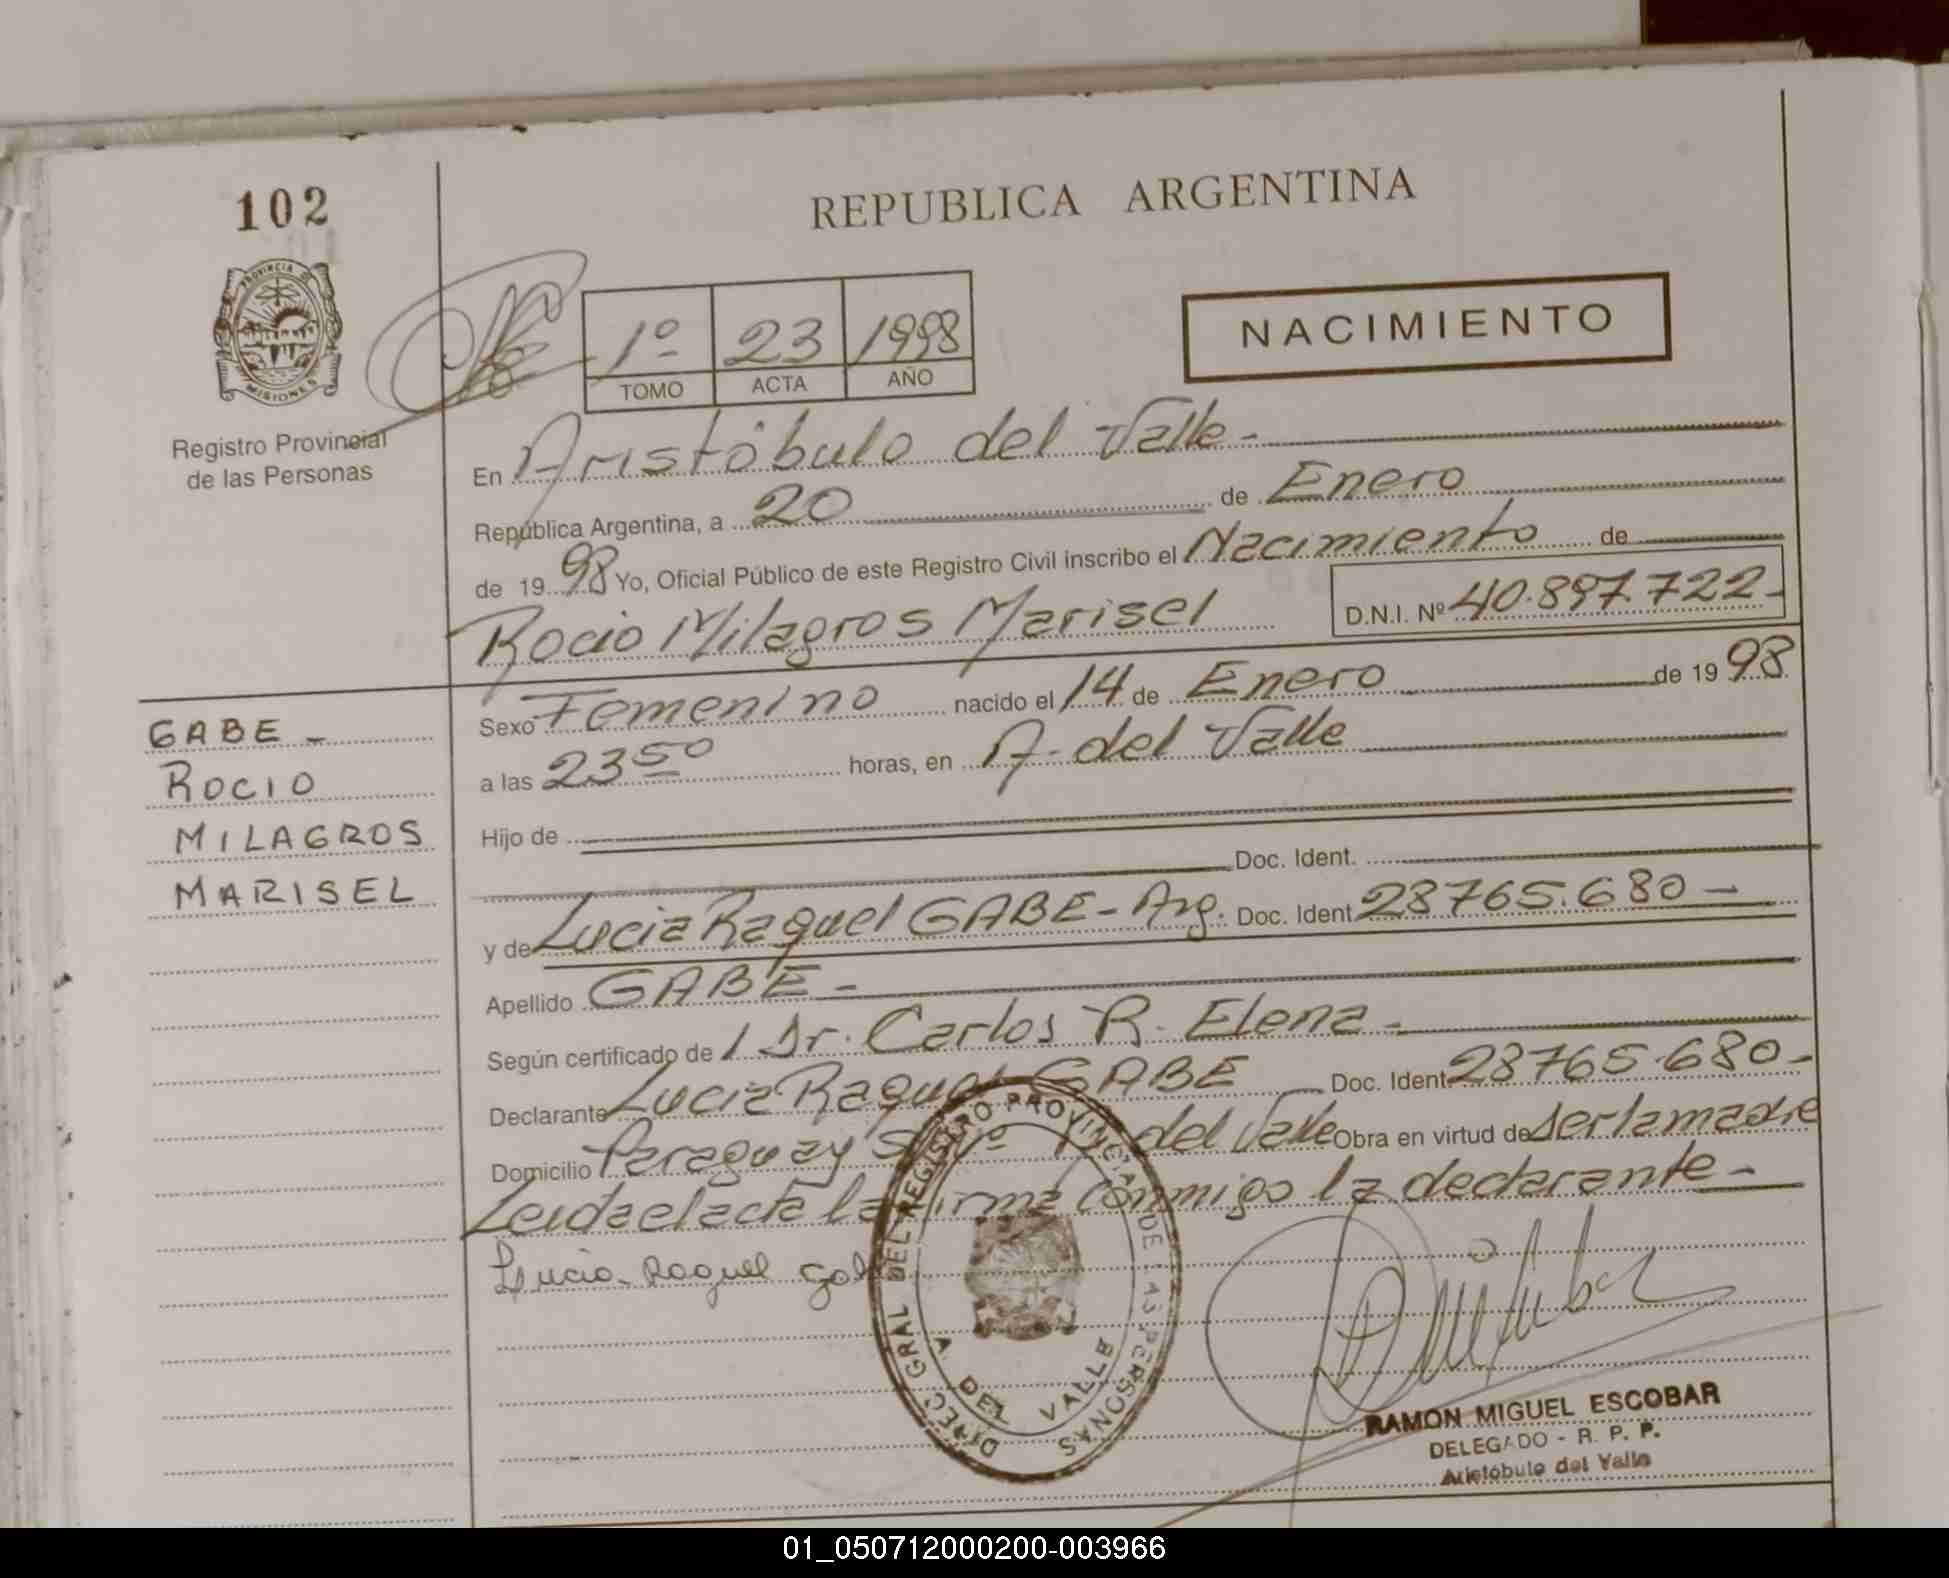 102
REPUBLICA ARGENTINA
PROVINCIA DE
MISIONES
Registro Provincial
de las Personas
1º 23 1998
TOMO ACTA AÑO
NACIMIENTO
En Aristóbulo del Valle -
República Argentina, a 20 de Enero
de 1998 Yo, Oficial Público de este Registro Civil inscribo el Nacimiento de
Rocio Milagros Marisel D.N.I. Nº 40.897.722-
Sexo Femenino nacido el 14 de Enero de 1998
a las 23 50 horas, en A. del Valle
Hijo de
Doc. Ident.
y de Lucia Raquel GABE - Arg. Doc. Ident 23765.680 -
Apellido GABE -
Según certificado de Dr. Carlos R. Elena -
Declarante Lucia Raquel GABE Doc. Ident. 23765.680 -
Domicilio Paraguay del Valle Obra en virtud de ser la madre
Leida el acta la firma conmigo la declarante -
Lucia Raquel
GABE -
ROCIO
MILAGROS
MARISEL
DIREC. GRAL DEL REGISTRO PROVINCIAL DE LAS PERSONAS
A. DEL VALLE
RAMON MIGUEL ESCOBAR
DELEGADO - R. P. P.
Aristóbulo del Valle
01_050712000200-003966